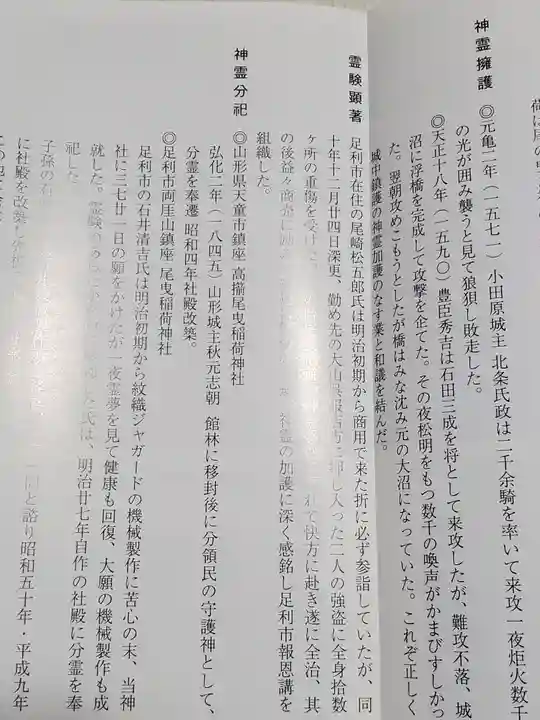 神霊擁護
◎元亀二年(一五七一) 小田原城主 北条氏政は二千余騎を率いて来攻一夜炬火数千
の光が囲み襲うと見て狼狽し敗走した。
◎天正十八年(一五九〇)豊臣秀吉は石田三成を将として来攻したが、難攻不落、城
沼に浮橋を完成して攻撃を企てた。その夜松明をもつ数千の喚声がかまびすしかっ
た。翌朝攻めこもうとしたが橋はみな沈み元の大沼になっていた。これぞ正しく
城中鎮護の神霊加護のなす業と和議を結んだ。
霊験顕著
足利市在住の尾崎松五郎氏は明治初期から商用で来た折に必ず参詣していたが、同
十年十二月廿四日深更、勤め先の大山
に押し入った二人の強盗に全身拾数
ヶ所の重傷を受け
れて快方に赴き遂に全治、其
の後益々商売に
神霊の加護に深く感銘し足利市報恩講を
組織した。
神霊分祀
◎山形県天童市鎮座 高擶尾曳稲荷神社
弘化二年(一八四五)山形城主秋元志朝 館林に移封後に分領民の守護神として、
分霊を奉遷 昭和四年社殿改築。
◎足利市両崖山鎮座 尾曳稲荷神社
足利市の石井清吉氏は明治初期から紋織ジャガードの機械製作に苦心の末、当神
社に三七廿一日の願をかけたが一夜霊夢を見て健康も回復、大願の機械製作も成
就した。霊験の
氏は、明治廿七年自作の社殿に分霊を奉
祀した。
子孫の石
同と諮り昭和五十年・平成九年
に社殿を改築し